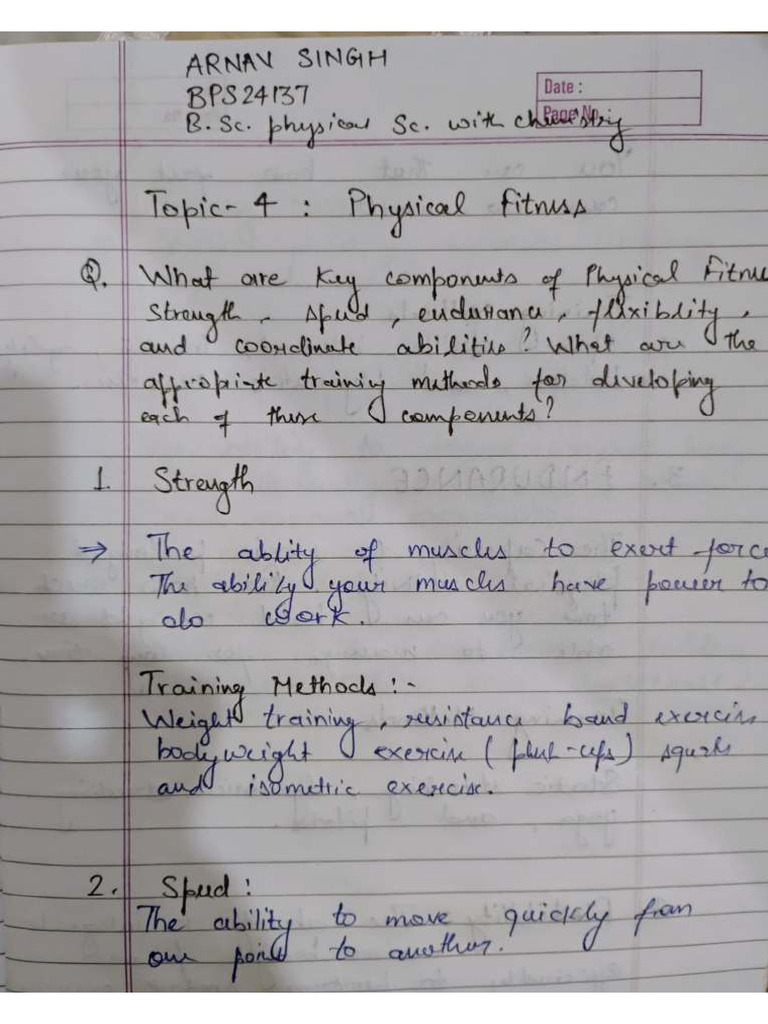 ARNAV SINGH
BPS24137
Date :
B. Sc. physical Sc. with chemistry
Page No.
Topic- 4 : Physical Fitness
Q. What are Key components of Physical Fitne
Strength, speed, endurance, flexiblity,
and coordinate abilities? What are the
appropiate training methods for developing
each of these components?
1. Strength
⇒ The ablity of muscles to exert force
The ability your muscles have power to
do work.
Training Methods :-
Weight training, resistance band exercise
bodyweight exercise (push-ups) squats
and isometric exercise.
2. Speed :
The ability to move quickly from
one point to another.